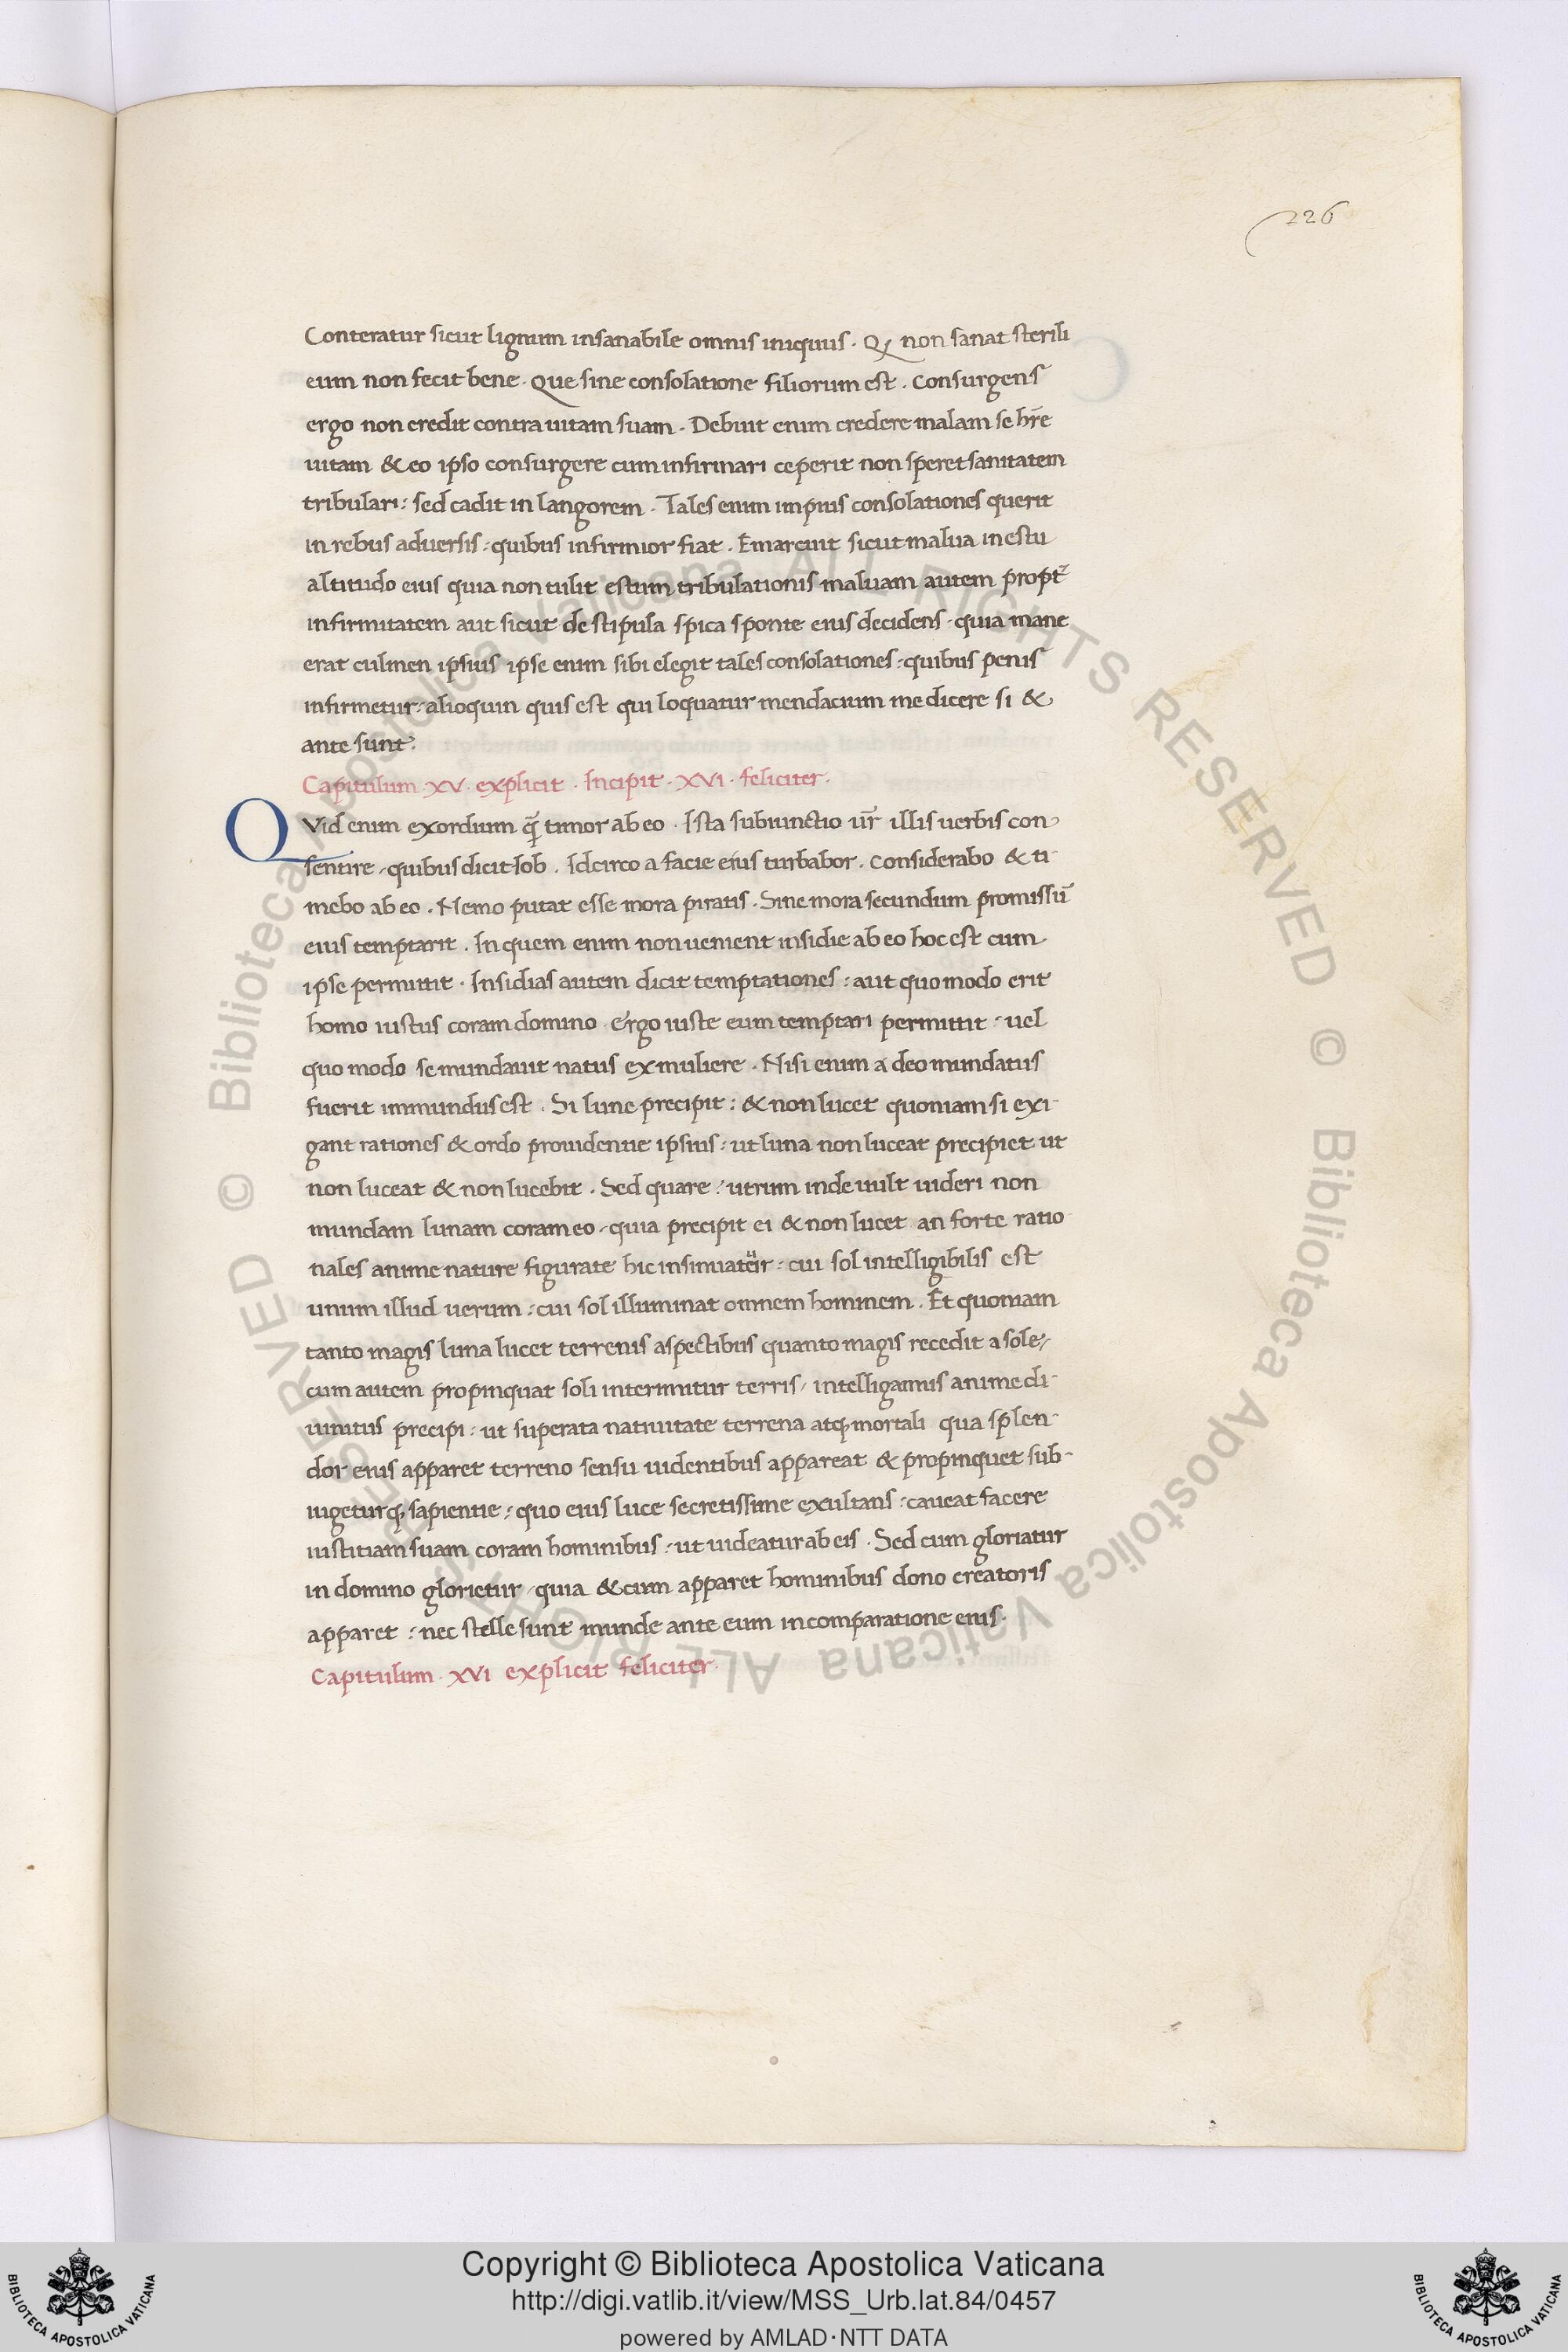 226
Conteratur sicut lignum insanabile omnis iniquus . Qꝫ non sanat sterili
eum non fecit bene . Que sine consolatione filiorum est . Consurgens
ergo non credit contra uitam suam . Debuit enim credere malam se hr̄e
uitam & eo ipso consurgere cum infirmari ceperit non speret sanitatem
tribulari : sed cadit in langorem . Tales enim impius consolationes querit
in rebus aduersis : quibus infirmior fiat . Emarcuit sicut malua in estu
altitudo eius quia non tulit estum tribulationis maluam autem propt̄
infirmitatem aut sicut de stipula spica sponte eius decidens . quia mane
erat culmen ipsius ipse enim sibi elegit tales consolationes : quibus penis
infirmetur : alioquin quis est qui loquatur mendacium me dicere si &
ante sunt .
Capitulum . XV . explicit . Incipit . XVI . feliciter .
QVid enim exordium qꝫ̄ timor ab eo . Ista subiunctio ur̄ illis uerbis con
sentire , quibus dicit Iob . Idcirco a facie eius turbabor . Considerabo & ti-
mebo ab eo . Nemo putat esse mora piratis . Sine mora secundum promissū
eius temptarit . In quem enim non uenient insidie ab eo hoc est cum
ipse permittit . Insidias autem dicit temptationes : aut quo modo erit
homo iustus coram domino . Ergo iuste eum temptari permittit : uel
quo modo se mundauit natus ex muliere . Nisi enim a deo mundatus
fuerit immundus est . Si lune precipit : & non lucet quoniam si exi-
gant rationes & ordo prouidentie ipsius : ut luna non luceat precipiet ut
non luceat & non lucebit . Sed quare : utrum inde uult uideri non
mundam lunam coram eo , quia precipit ei & non lucet an forte ratio
nales anime nature figurate hic insinuatur : cui sol intelligibilis est
unum illud uerum : cui sol illuminat omnem hominem . Et quoniam
tanto magis luna lucet terrenis aspectibus quanto magis recedit a sole ,
cum autem propinquat soli interimitur terris , intelligamus anime di-
uinitus precipi : ut superata natiuitate terrena atqꝫ mortali qua splen-
dor eius apparet terreno sensu uidentibus appareat & propinquet sub-
iugeturqꝫ sapientie : quo eius luce secretissime exultans : caueat facere
iustitiam suam coram hominibus : ut uideatur ab eis . Sed cum gloriatur
in domino glorietur , quia & cum apparet hominibus dono creatoris
apparet : nec stelle sunt munde ante eum in comparatione eius .
Capitulum . XVI explicit feliciter .
© Biblioteca Apostolica Vaticana ALL RIGHTS RESERVED © Biblioteca Apostolica Vaticana ALL RIGHTS RESERVED
Copyright © Biblioteca Apostolica Vaticana
http://digi.vatlib.it/view/MSS_Urb.lat.84/0457
powered by AMLAD·NTT DATA
BIBLIOTECA APOSTOLICA VATICANA
BIBLIOTECA APOSTOLICA VATICANA